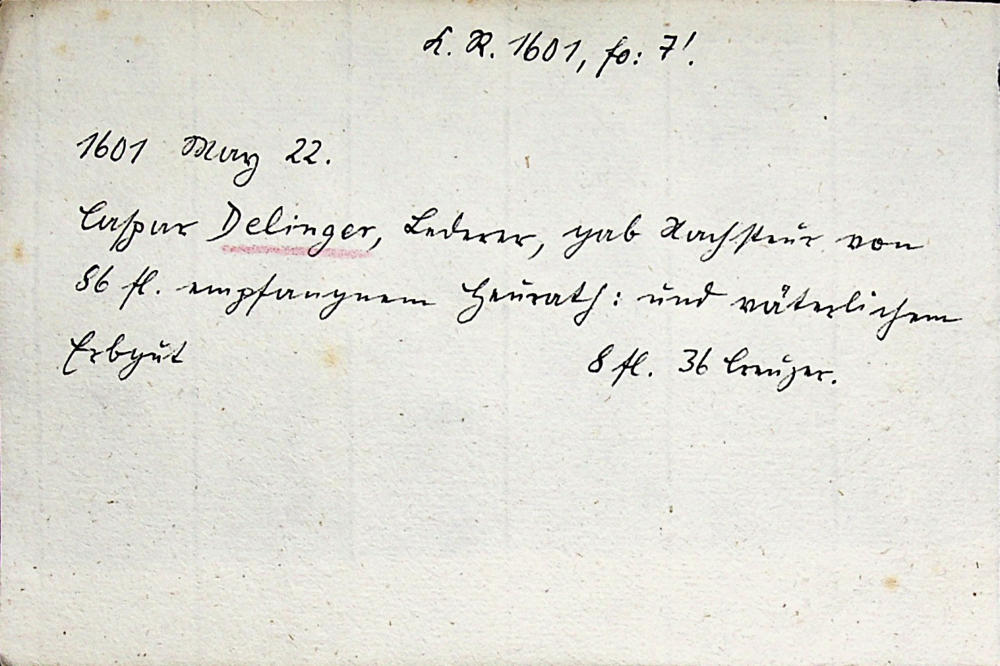 L. R. 1601, fo: 7'.
1601 May 22.
Caspar Delinger, Lederer, gab Nachsteur von
86 fl. empfangnem Heurath: und väterlichem
Erbgut 8 fl. 36 Creuzer.